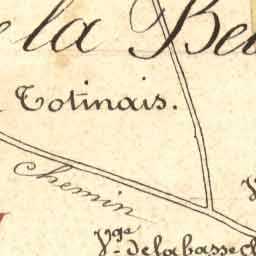 la Be
Totinais.
Chemin
Vge de la basse